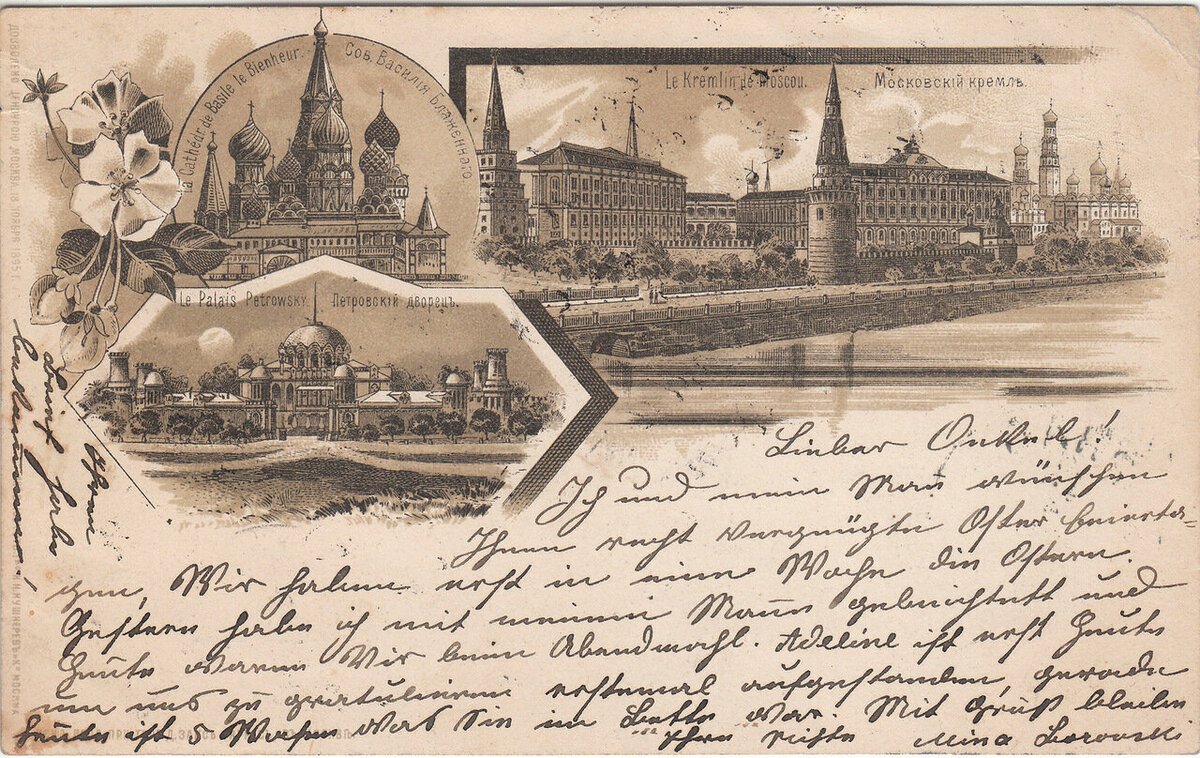 la Cathédr de Basile le Bienheur. Соб. Василія Блаженного
Le Kremlin de Moscou. Московскій кремль.
Le Palais Petrowsky. Петровскій дворецъ.
Lieber Onkel!
Ich und mein Mann wünschen
Ihnen recht vergnügte Oster beierta-
gen, Wir haben erst in eine Woche die Ostern.
Gestern habe ich mit meinem Mann gebeichtett und
Heute waren Wir beim Abendmahl. Adeline ist erst Heute
um uns zu gratulieren erstemal aufgestanden, gerade
Heute ist 5 Wochen was Sie im Bette war. Mit Gruß bleiben
Ihre Nichte Mina